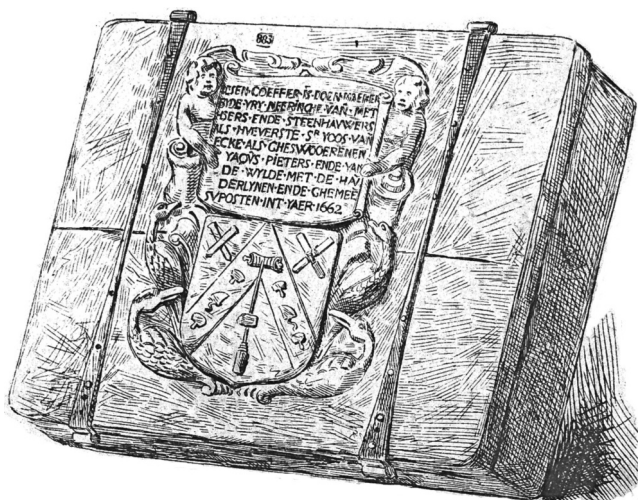 883
DESEN·COEFFER·IS·DOEN
DE·VRY·NEERINCHE·VAN·MET
SERS·ENDE·STEENHAVWERS
ALS·HVEVERSTE·Sᴿ·YOOS·VAN
ECKE·ALS·GHESWOOERENEN
YAQVS·PIETERS·ENDE·VAN
DE·WYLDE·MET·DE·HAV
DERLYNEN·ENDE·GHEMEE
SVPOSTEN·INT·YAER·1662